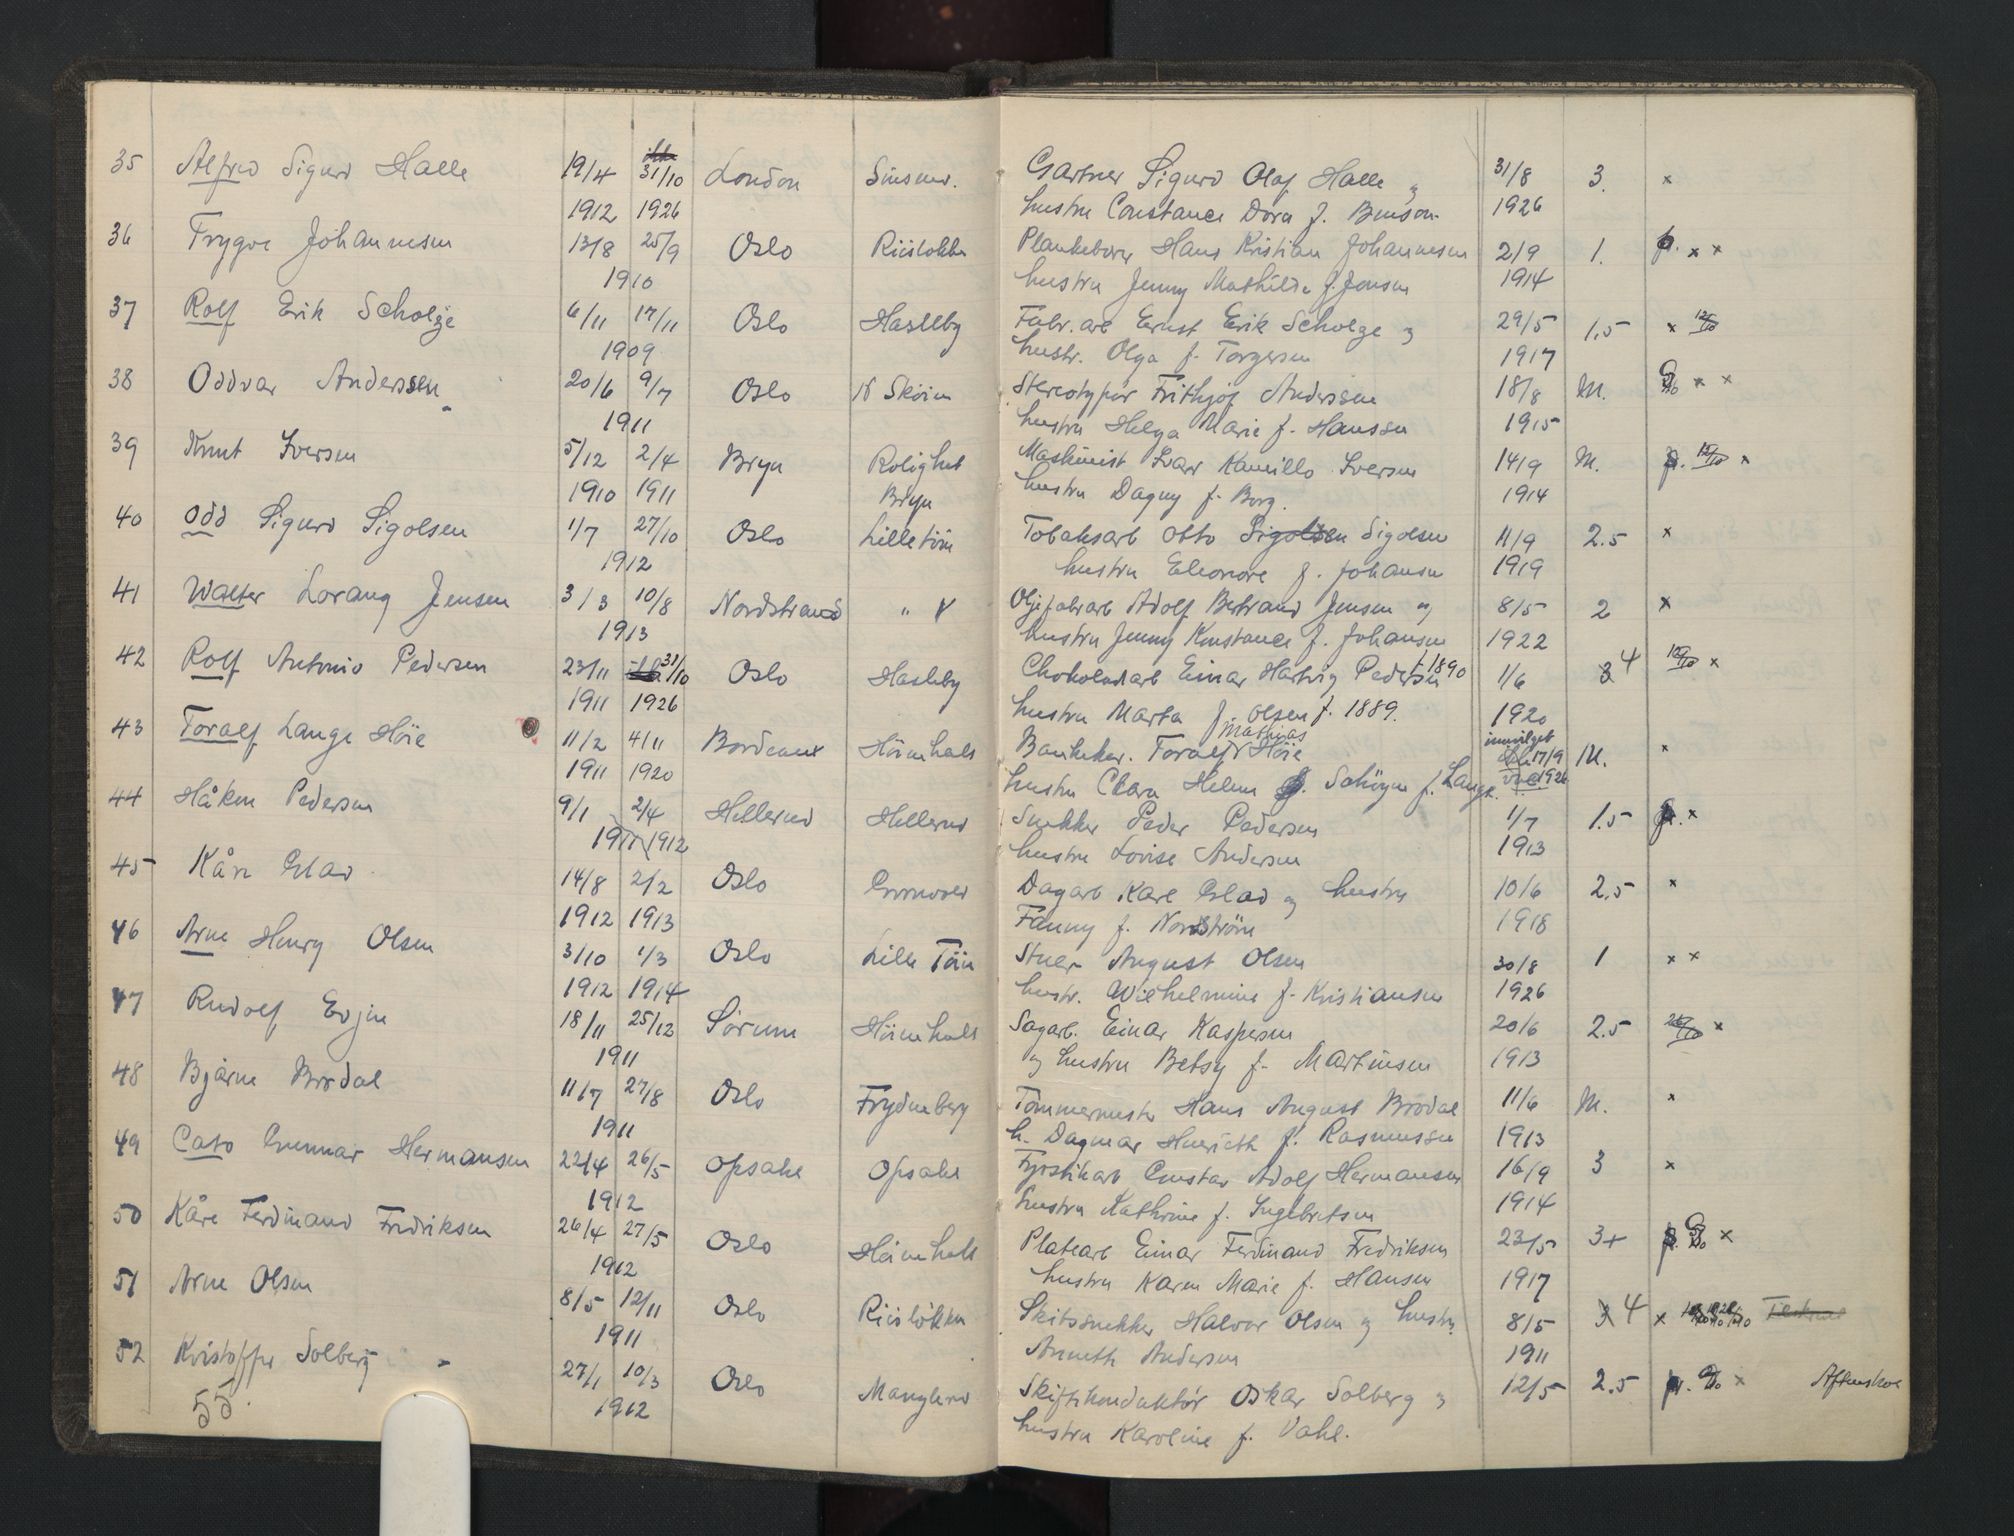 35 Alfred Sigurd Halle 19/4 31/10 London Sinsen. Gartner Sigurd Olaf Halle og 31/8 3. x
1912 1926 hustru Constance Dora f. Benson 1926
36 Trygve Johannesen 13/8 25/9 Oslo Riisløkka Plankebærer Hans Kristian Johannesen 2/9 1. p. x x
1910 hustru Jenny Mathilde f. Jensen 1914
37 Rolf Erik Scholze 6/11 17/11 Oslo Hasleby Fabr.arb Ernst Erik Scholze og 29/5 1,5 x 12/10
1909 hustr. Olga f. Torgersen 1917
38 Oddvar Anderssen 20/6 9/7 Oslo N Skøien Stereotypør Frithjof Anderssen 18/8 M. x x
1911 hustru Helga Marie f. Hanssen 1915
39 Knut Iversen 5/12 2/4 Bryn Rolighet Maskinist Ivar Kamillo Iversen 14/9 M. p. 12/10 x
1910 1911 Bryn hustru Dagny f. Borg. 1914
40 Odd Sigurd Sigolsen 1/7 27/10 Oslo Lilletøien Tobaksarb Otto Sigolsen Sigolsen 11/9 2.5 x
1912 hustru Eleonore f. Johansen 1919
41 Walter Lorang Jensen 3/3 10/8 Nordstrand " Oljefabrarb Adolf Bertrand Jensen og 8/5 2 x
1913 hustru Jenny Konstance f. Johansen 1922
42 Rolf Antonio Pedersen 23/11 31/10 Oslo Hasleby Chokoladarb Einar Hartvig Pedersen f. 1890 1/6 3 4 12/10 x
1911 1926 hustru Marta f. Olsen f. 1889. 1920
43 Toralf Lange Höie 11/2 4/11 Bordeaux Höienhals Bankeker. Toralf Mathias Höie innvilget 17/9 M. x
1911 1920 hustru Clara Helene Schöyen f. Lange. 1926
44 Håkon Pedersen 9/1 2/4 Hellerud Hellerud Snekker Peder Pedersen 1/7 1.5 p. x
1911 1912 hustru Lovise Andersen 1913
45 Kåre Glad 14/8 2/2 Oslo Dagarb Karl Glad og hustru 10/6 2.5 x
1912 1913 Fanny f. Nordström 1918
46 Arne Henry Olsen 3/10 1/3 Oslo Lille Töien Stuer August Olsen 30/8 1 x x
1912 1914 hustr. Wilhelmine f. Kristiansen 1926
47 Rudolf Evjen 18/11 25/12 Sörum Höienhals Sagarb. Einar Kaspersen 20/6 2.5 26/10 x
1911 og hustru Betsy f. Martinsen 1913
48 Bjarne Brodal 11/7 27/8 Oslo Frydenberg Tömmermester Hans August Brodal 11/6 M. x
1911 h. Dagmar Henriette f. Rasmussen 1913
49 Cato Gunnar Hermansen 22/4 26/5 Opsahl Opsahl Fyrstikarb Gustav Adolf Hermansen 16/9 3 x
1912 hustru Kathrine f. Ingebretsen 1914
50 Kåre Ferdinand Fredriksen 26/4 27/5 Oslo Höienhals Platearb Einar Ferdinand Fredriksen 23/5 3+ p. x
1912 hustru Karen Marie f. Hansen 1917
51 Arne Olsen 8/5 12/11 Oslo Riisløkken Skitssnekker Halvor Olsen og hustru 8/5 3 4 x
1911 Anneth Andersen 1911
52 Kristoffer Solberg 27/1 10/3 Oslo Manglerud Skiftekonduktør Oskar Solberg og 12/5 2.5 p. x Aftenskole
55. 1912 hustru Karoline f. Dahl.